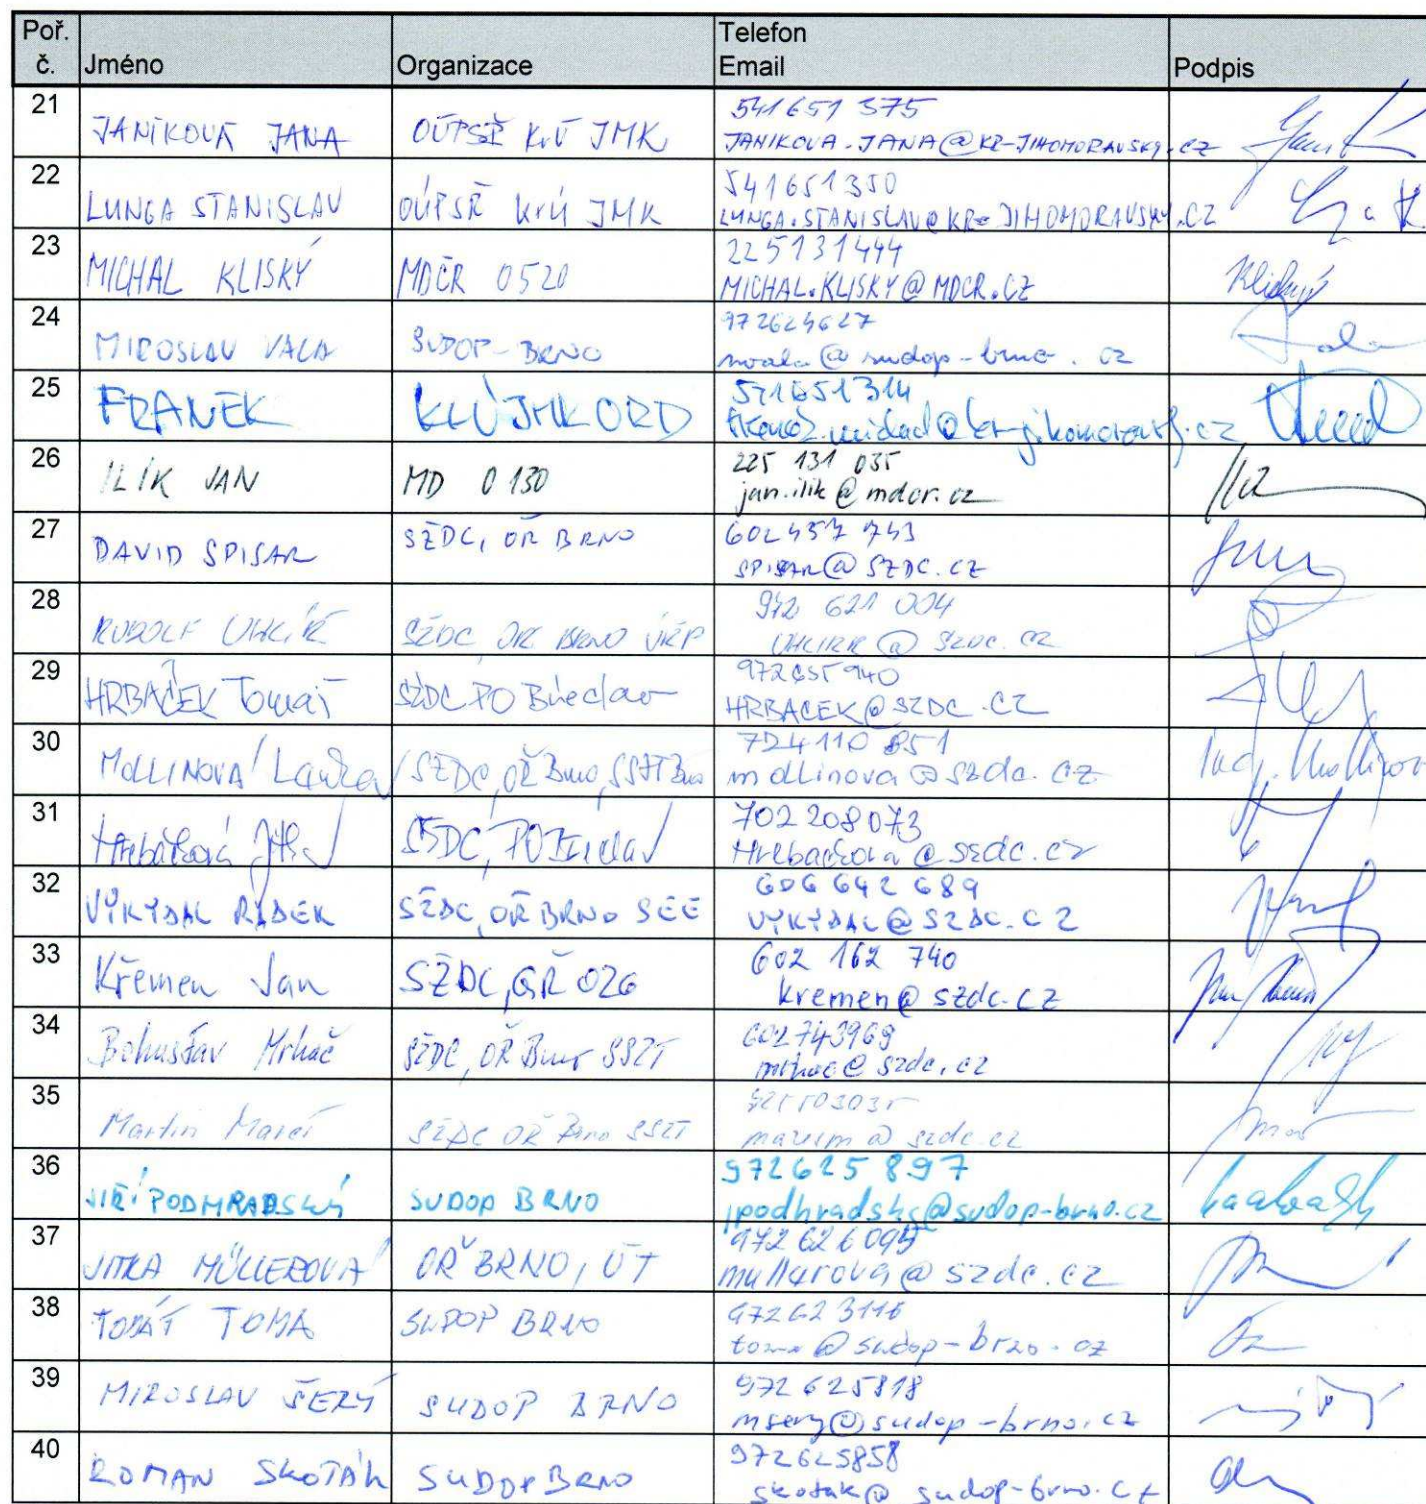 Poř. č. Jméno Organizace Telefon Email Podpis
21 JANÍKOVÁ JANA OÚPSŘ KrÚ JMK 541651 375
JANIKOVA.JANA@KR-JIHOMORAVSKY.CZ
22 LUNGA STANISLAV OÚPSŘ KrÚ JMK 541651350
LUNGA.STANISLAV@KR-JIHOMORAVSKY.CZ
23 MICHAL KLISKÝ MDČR 0520 225131444
MICHAL.KLISKY@MDCR.CZ
24 MIROSLAV VALA SUDOP-BRNO 972624627
mvala@sudop-brno.cz
25 FRANEK KrÚ JMK ORD
26 ILÍK JAN MD 0130 225 131 035
jan.ilik@mdcr.cz
27 DAVID SPISAR SŽDC, OŘ BRNO 602 457 743
SPISAR@SZDC.CZ
28 RUDOLF UHLÍŘ SŽDC OŘ BRNO 972 621 004
UHLIRR@szdc.cz
29 HRBÁČEK Tomáš SŽDC PO Břeclav
HRBACEK@SZDC.CZ
30 MOLLINOVÁ SŽDC, OŘ Brno, SSZT Brno 724110 851
mollinova@szdc.cz
31 Hrebačková SŽDC, PO Břeclav 702 208 073
Hrebackova@szdc.cz
32 VYKYDAL RADEK SŽDC, OŘ BRNO SEE 606 642 689
VYKYDAL@SZDC.CZ
33 Křemen Jan SŽDC, GŘ O26 602 162 740
kremen@szdc.cz
34 Bohuslav Mrháč SŽDC, OŘ Brno SSZT 602743969
mrhac@szdc.cz
35 Martin Mareš SŽDC OŘ Brno SSZT
maresm@szdc.cz
36 JIŘÍ PODHRADSKÝ SUDOP BRNO 972625 897
jpodhradsky@sudop-brno.cz
37 JITKA MÜLLEROVÁ OŘ BRNO, ÚT
mullerova@szdc.cz
38 TOMÁŠ TOMA SUDOP BRNO 972623116
toma@sudop-brno.cz
39 MIROSLAV ŠERÝ SUDOP BRNO 972 625818
msery@sudop-brno.cz
40 ROMAN SKOTÁK SUDOP BRNO 972625858
skotak@sudop-brno.cz